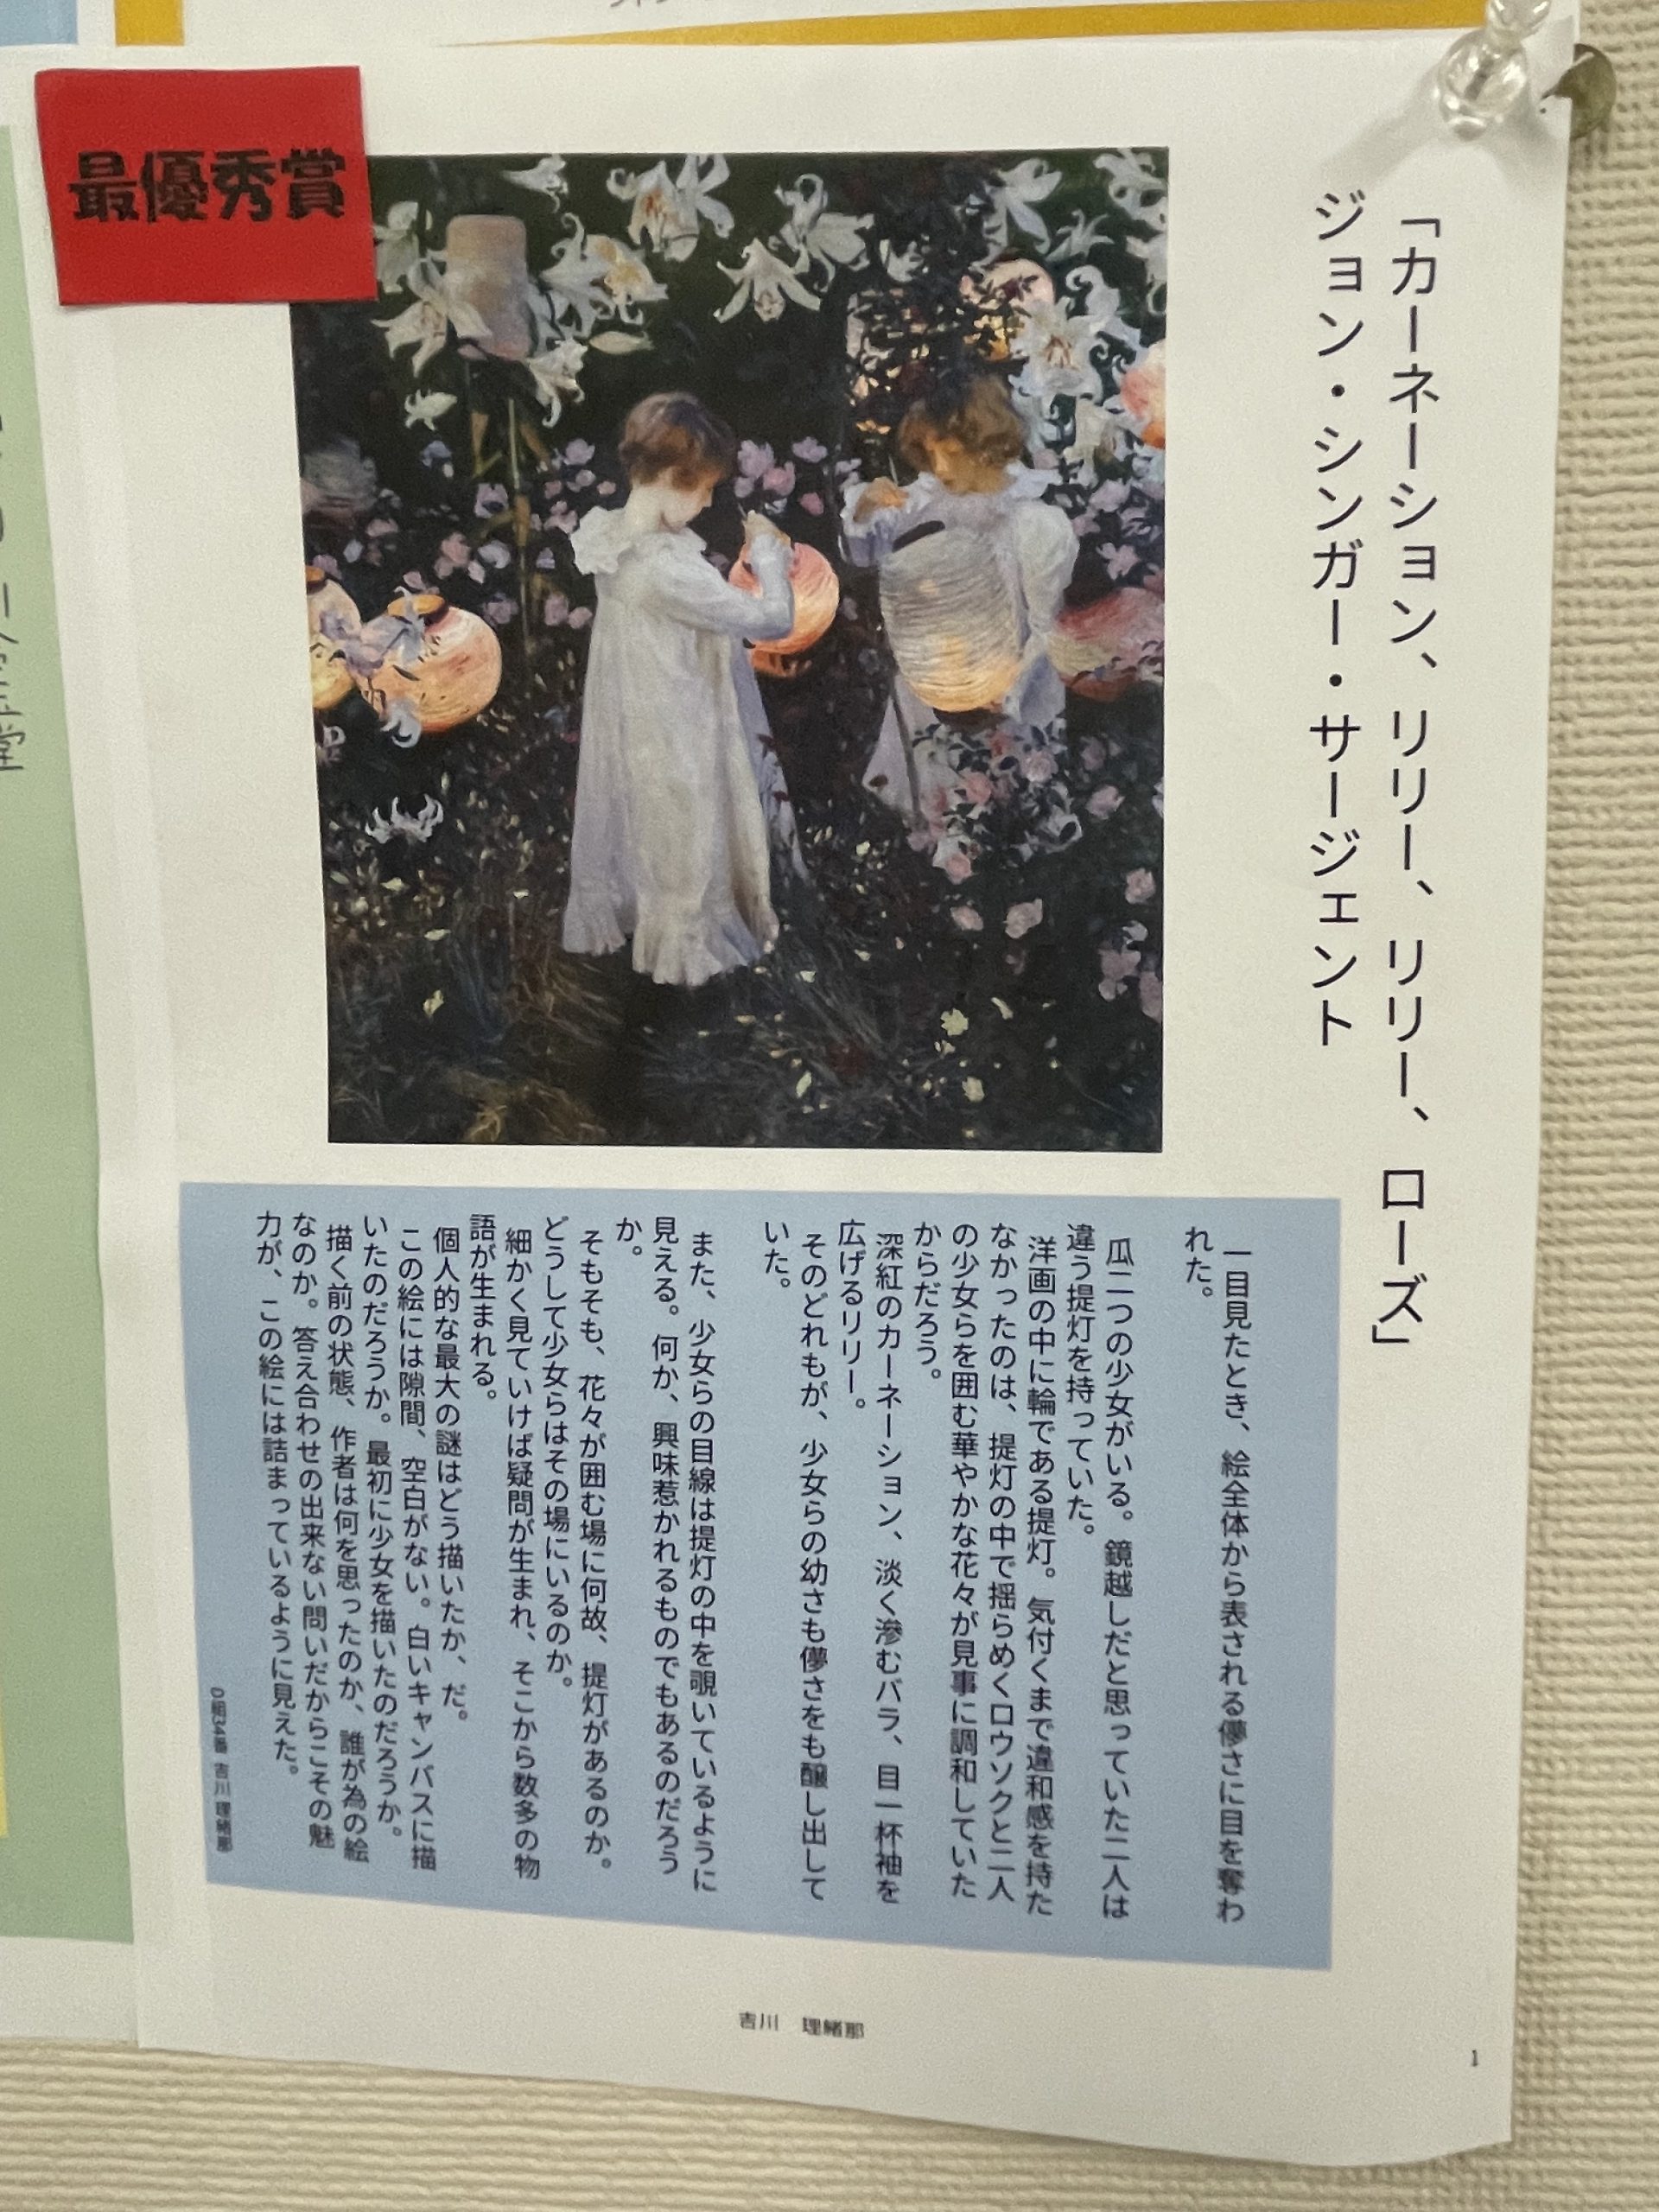 最優秀賞
「カーネーション、リリー、リリー、ローズ」
ジョン・シンガー・サージェント
一目見たとき、絵全体から表される儚さに目を奪わ
れた。
瓜二つの少女がいる。鏡越しだと思っていた二人は
違う提灯を持っていた。
洋画の中に輪である提灯。気付くまで違和感を持た
なかったのは、提灯の中で揺らめくロウソクと二人
の少女らを囲む華やかな花々が見事に調和していた
からだろう。
深紅のカーネーション、淡く滲むバラ、目一杯袖を
広げるリリー。
そのどれもが、少女らの幼さも儚さをも醸し出して
いた。
また、少女らの目線は提灯の中を覗いているように
見える。何か、興味惹かれるものでもあるのだろう
か。
そもそも、花々が囲む場に何故、提灯があるのか。
どうして少女らはその場にいるのか。
細かく見ていけば疑問が生まれ、そこから数多の物
語が生まれる。
個人的な最大の謎はどう描いたか、だ。
この絵には隙間、空白がない。白いキャンバスに描
いたのだろうか。最初に少女を描いたのだろうか。
描く前の状態、作者は何を思ったのか、誰が為の絵
なのか。答え合わせの出来ない問いだからこその魅
力が、この絵には詰まっているように見えた。
D組34番 吉川 理緒那
吉川　理緒那
1